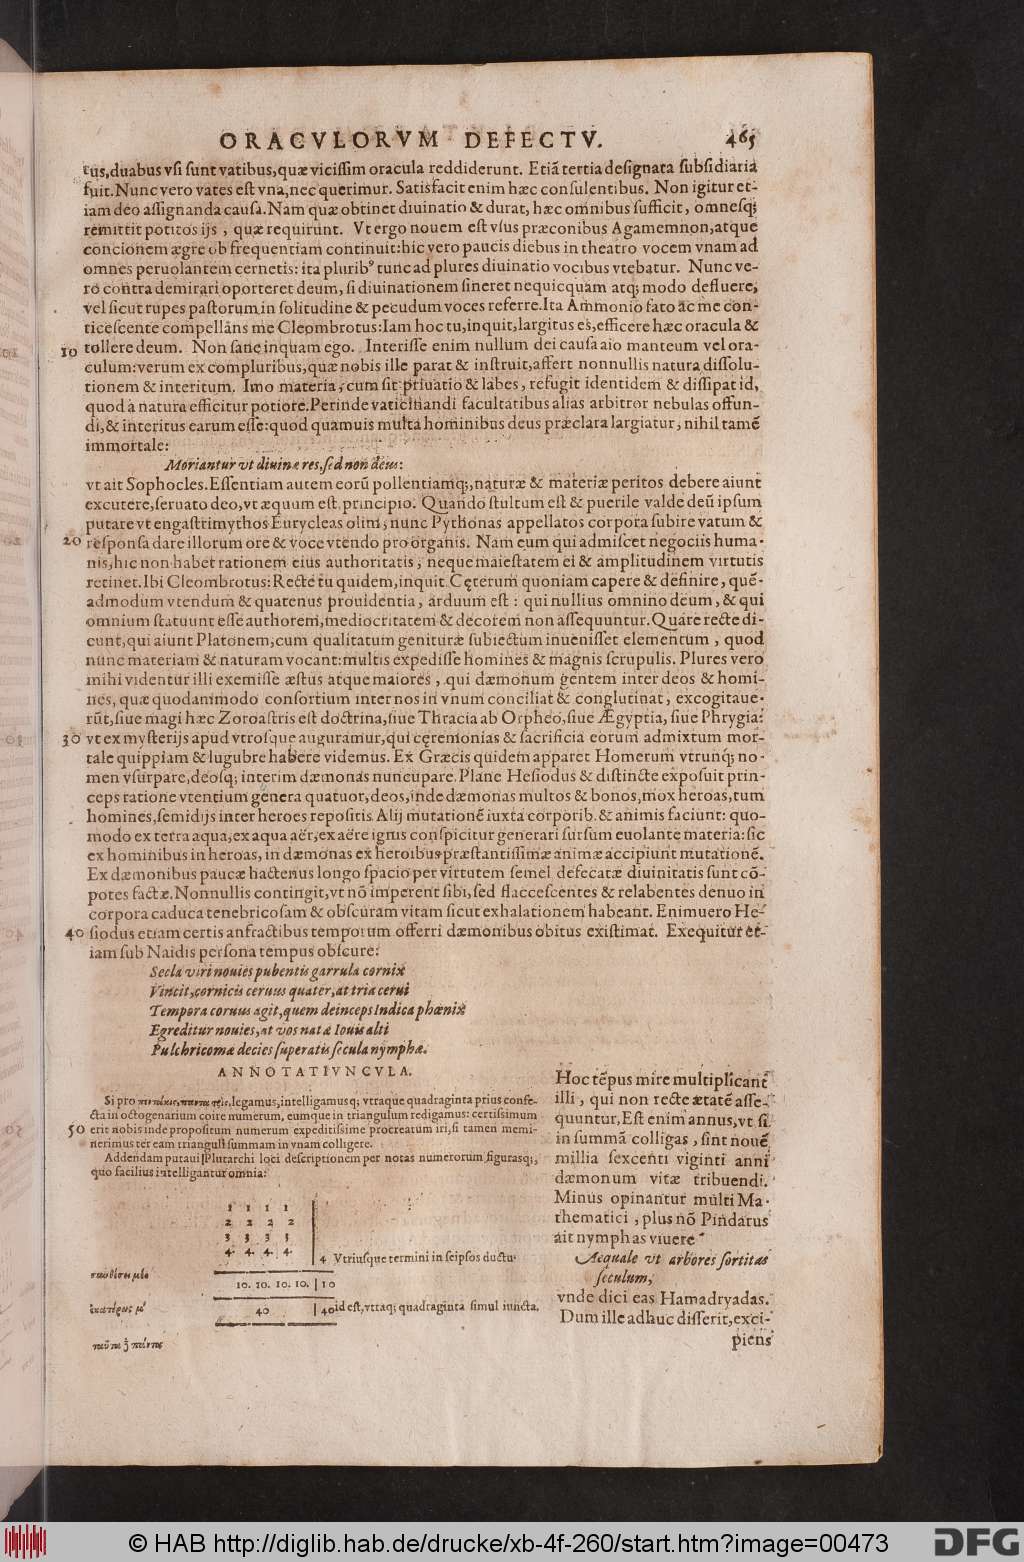 ORACVLORVM DEFECTV. 465
tus, duabus vsi sunt vatibus, quæ vicissim oracula reddiderunt. Etiā tertia designata subsidiaria
fuit. Nunc vero vates est vna, nec querimur. Satisfacit enim hæc consulentibus. Non igitur et-
iam deo assignanda causa. Nam quæ obtinet diuinatio & durat, hæc omnibus sufficit, omnesq;
remittit potitos ijs, quæ requirunt. Vt ergo nouem est vsus præconibus Agamemnon, atque
concionem ægre ob frequentiam continuit: hic vero paucis diebus in theatro vocem vnam ad
omnes peruolantem cernetis: ita plurib⁹ tunc ad plures diuinatio vocibus vtebatur. Nunc ve-
ro contra demirari oporteret deum, si diuinationem sineret nequicquam atq; modo defluere,
vel sicut rupes pastorum in solitudine & pecudum voces referre. Ita Ammonio fato ac me con-
ticescente compellāns me Cleombrotus: Iam hoc tu, inquit, largitus es, efficere hæc oracula &
10 tollere deum. Non sane inquam ego. Interisse enim nullum dei causa aio manteum vel ora-
culum: verum ex compluribus, quæ nobis ille parat & instruit, affert nonnullis natura dissolu-
tionem & interitum. Imo materia, cum sit priuatio & labes, refugit identidem & dissipat id,
quod à natura efficitur potiore. Perinde vaticinandi facultatibus alias arbitror nebulas offun-
di, & interitus earum esse: quod quamuis multa hominibus deus præclara largiatur, nihil tamē
immortale:
Moriantur vt diuinæ res, sed non deus:
vt ait Sophocles. Essentiam autem eorū pollentiamq;, naturæ & materiæ peritos debere aiunt
excutere, seruato deo, vt æquum est, principio. Quando stultum est & puerile valde deū ipsum
putare vt engastrimythos Eurycleas olim, nunc Pythonas appellatos corpora subire vatum &
20 responsa dare illorum ore & voce vtendo pro organis. Nam eum qui admiscet negociis huma-
nis, hic non habet rationem eius authoritatis, neque maiestatem ei & amplitudinem virtutis
retinet. Ibi Cleombrotus: Recte tu quidem, inquit. Cęterum quoniam capere & definire, quē-
admodum vtendum & quatenus prouidentia, arduum est: qui nullius omnino deum, & qui
omnium statuunt esse authorem, mediocritatem & decorem non assequuntur. Quare recte di-
cunt, qui aiunt Platonem, cum qualitatum genituræ subiectum inuenisset elementum, quod
nunc materiam & naturam vocant: multis expedisse homines & magnis scrupulis. Plures vero
mihi videntur illi exemisse æstus atque maiores, qui dæmonum gentem inter deos & homi-
nes, quæ quodammodo consortium inter nos in vnum conciliat & conglutinat, excogitaue-
rūt, siue magi hæc Zoroastris est doctrina, siue Thracia ab Orpheo, siue Ægyptia, siue Phrygia:
30 vt ex mysterijs apud vtrosque auguramur, qui cęremonias & sacrificia eorum admixtum mor-
tale quippiam & lugubre habere videmus. Ex Græcis quidem apparet Homerum vtrunq; no-
men vsurpare, deosq; interim dæmonas nuncupare. Plane Hesiodus & distincte exposuit prin-
ceps ratione vtentium genera quatuor, deos, inde dæmonas multos & bonos, mox heroas, tum
homines, semidijs inter heroes repositis. Alij mutationē iuxta corporib. & animis faciunt: quo-
modo ex terra aqua, ex aqua aër, ex aëre ignis conspicitur generari sursum euolante materia: sic
ex hominibus in heroas, in dæmonas ex heroibus præstantissimæ animæ accipiunt mutationē.
Ex dæmonibus paucæ hactenus longo spacio per virtutem semel defecatæ diuinitatis sunt cō-
potes factæ. Nonnullis contingit, vt nō imperent sibi, sed flaccescentes & relabentes denuo in
corpora caduca tenebricosam & obscuram vitam sicut exhalationem habeant. Enimuero He-
40 siodus etiam certis anfractibus temporum offerri dæmonibus obitus existimat. Exequitur et-
iam sub Naidis persona tempus obscure:
Secla viri nouies pubentis garrula cornix
Vincit, cornicis ceruus quater, at tria cerui
Tempora coruus agit, quem deinceps Indica phœnix
Egreditur nouies, at vos natæ Iouis alti
Pulchricomæ decies superatis secula nymphæ.
ANNOTATIVNCVLA.
Si pro legamus, intelligamusq; vtraque quadraginta prius confe-
cta in octogenarium coire numerum, eumque in triangulum redigamus: certissimum
50 erit nobis inde propositum numerum expeditissime procreatum iri, si tamen memi-
nerimus ter eam trianguli summam in vnam colligere.
Addendam putaui Plutarchi loci descriptionem per notas numerorum figurasq;,
quo facilius intelligantur omnia:
1 1 1 1
2 2 2 2
3 3 3 3
4. 4. 4. 4. 4 Vtriusque termini in seipsos ductu.
10. 10. 10. 10. | 10
40 | 40 id est, vtraq; quadraginta simul iuncta.
Hoc tēpus mire multiplicant
illi, qui non recte ætatē asse-
quuntur, Est enim annus, vt si
in summā colligas, sint nouē
millia sexcenti viginti anni
dæmonum vitæ tribuendi.
Minus opinantur multi Ma-
thematici, plus nō Pindarus
ait nymphas viuere
Aequale vt arbores sortitas
seculum,
vnde dici eas Hamadryadas.
Dum ille adhuc disserit, exci-
piens
© HAB http://diglib.hab.de/drucke/xb-4f-260/start.htm?image=00473
DFG